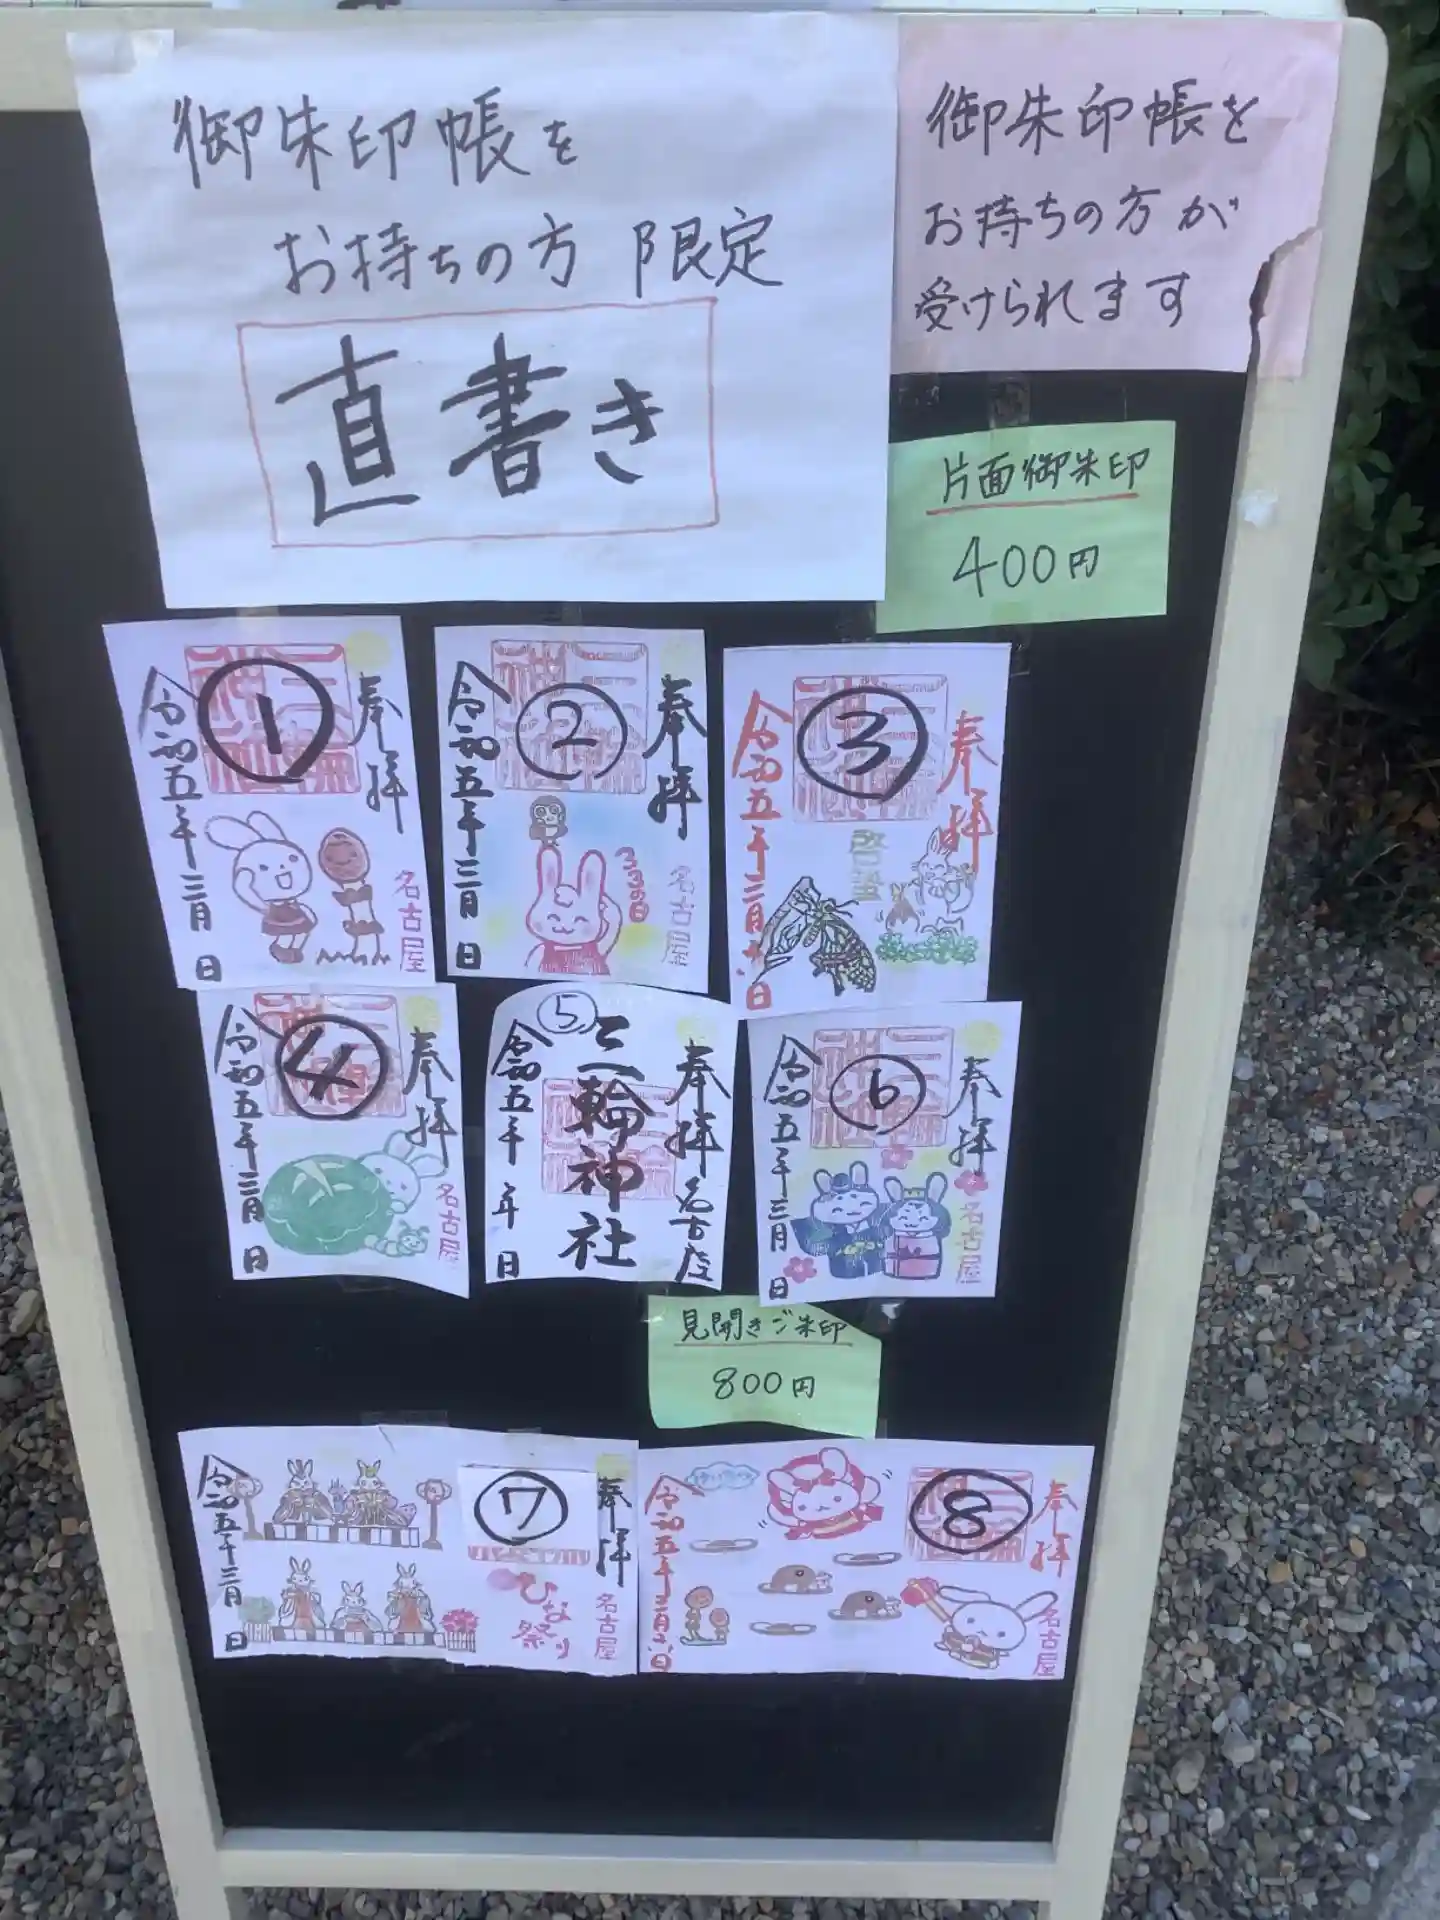 御朱印帳を
お持ちの方 限定
直書き
御朱印帳を
お持ちの方が
受けられます
片面御朱印
400円
①
奉拝
令和五年三月 日
名古屋
②
奉拝
令和五年三月 日
名古屋
③
奉拝
令和五年三月六日
啓蟄
④
奉拝
令和五年三月 日
名古屋
⑤
奉拝
三輪神社
令和五年 年 日
名古屋
⑥
奉拝
令和五年三月 日
名古屋
見開きご朱印
800円
⑦
奉拝
ひな
祭り
令和五年三月 日
名古屋
⑧
奉拝
令和五年三月六日
名古屋